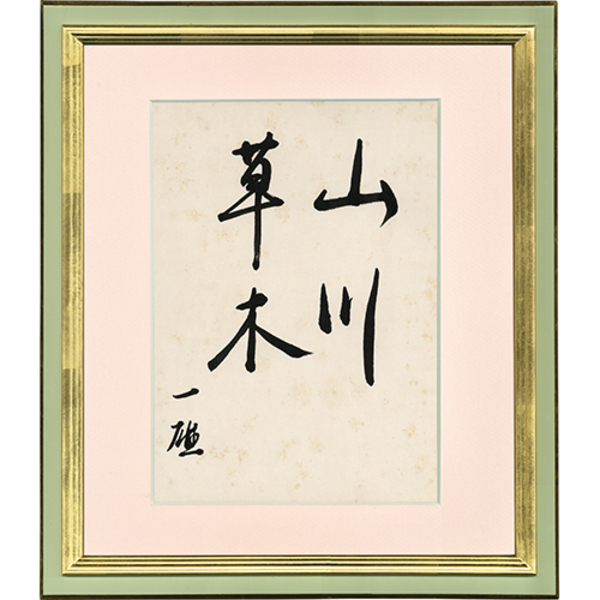 山川
草木
一雄